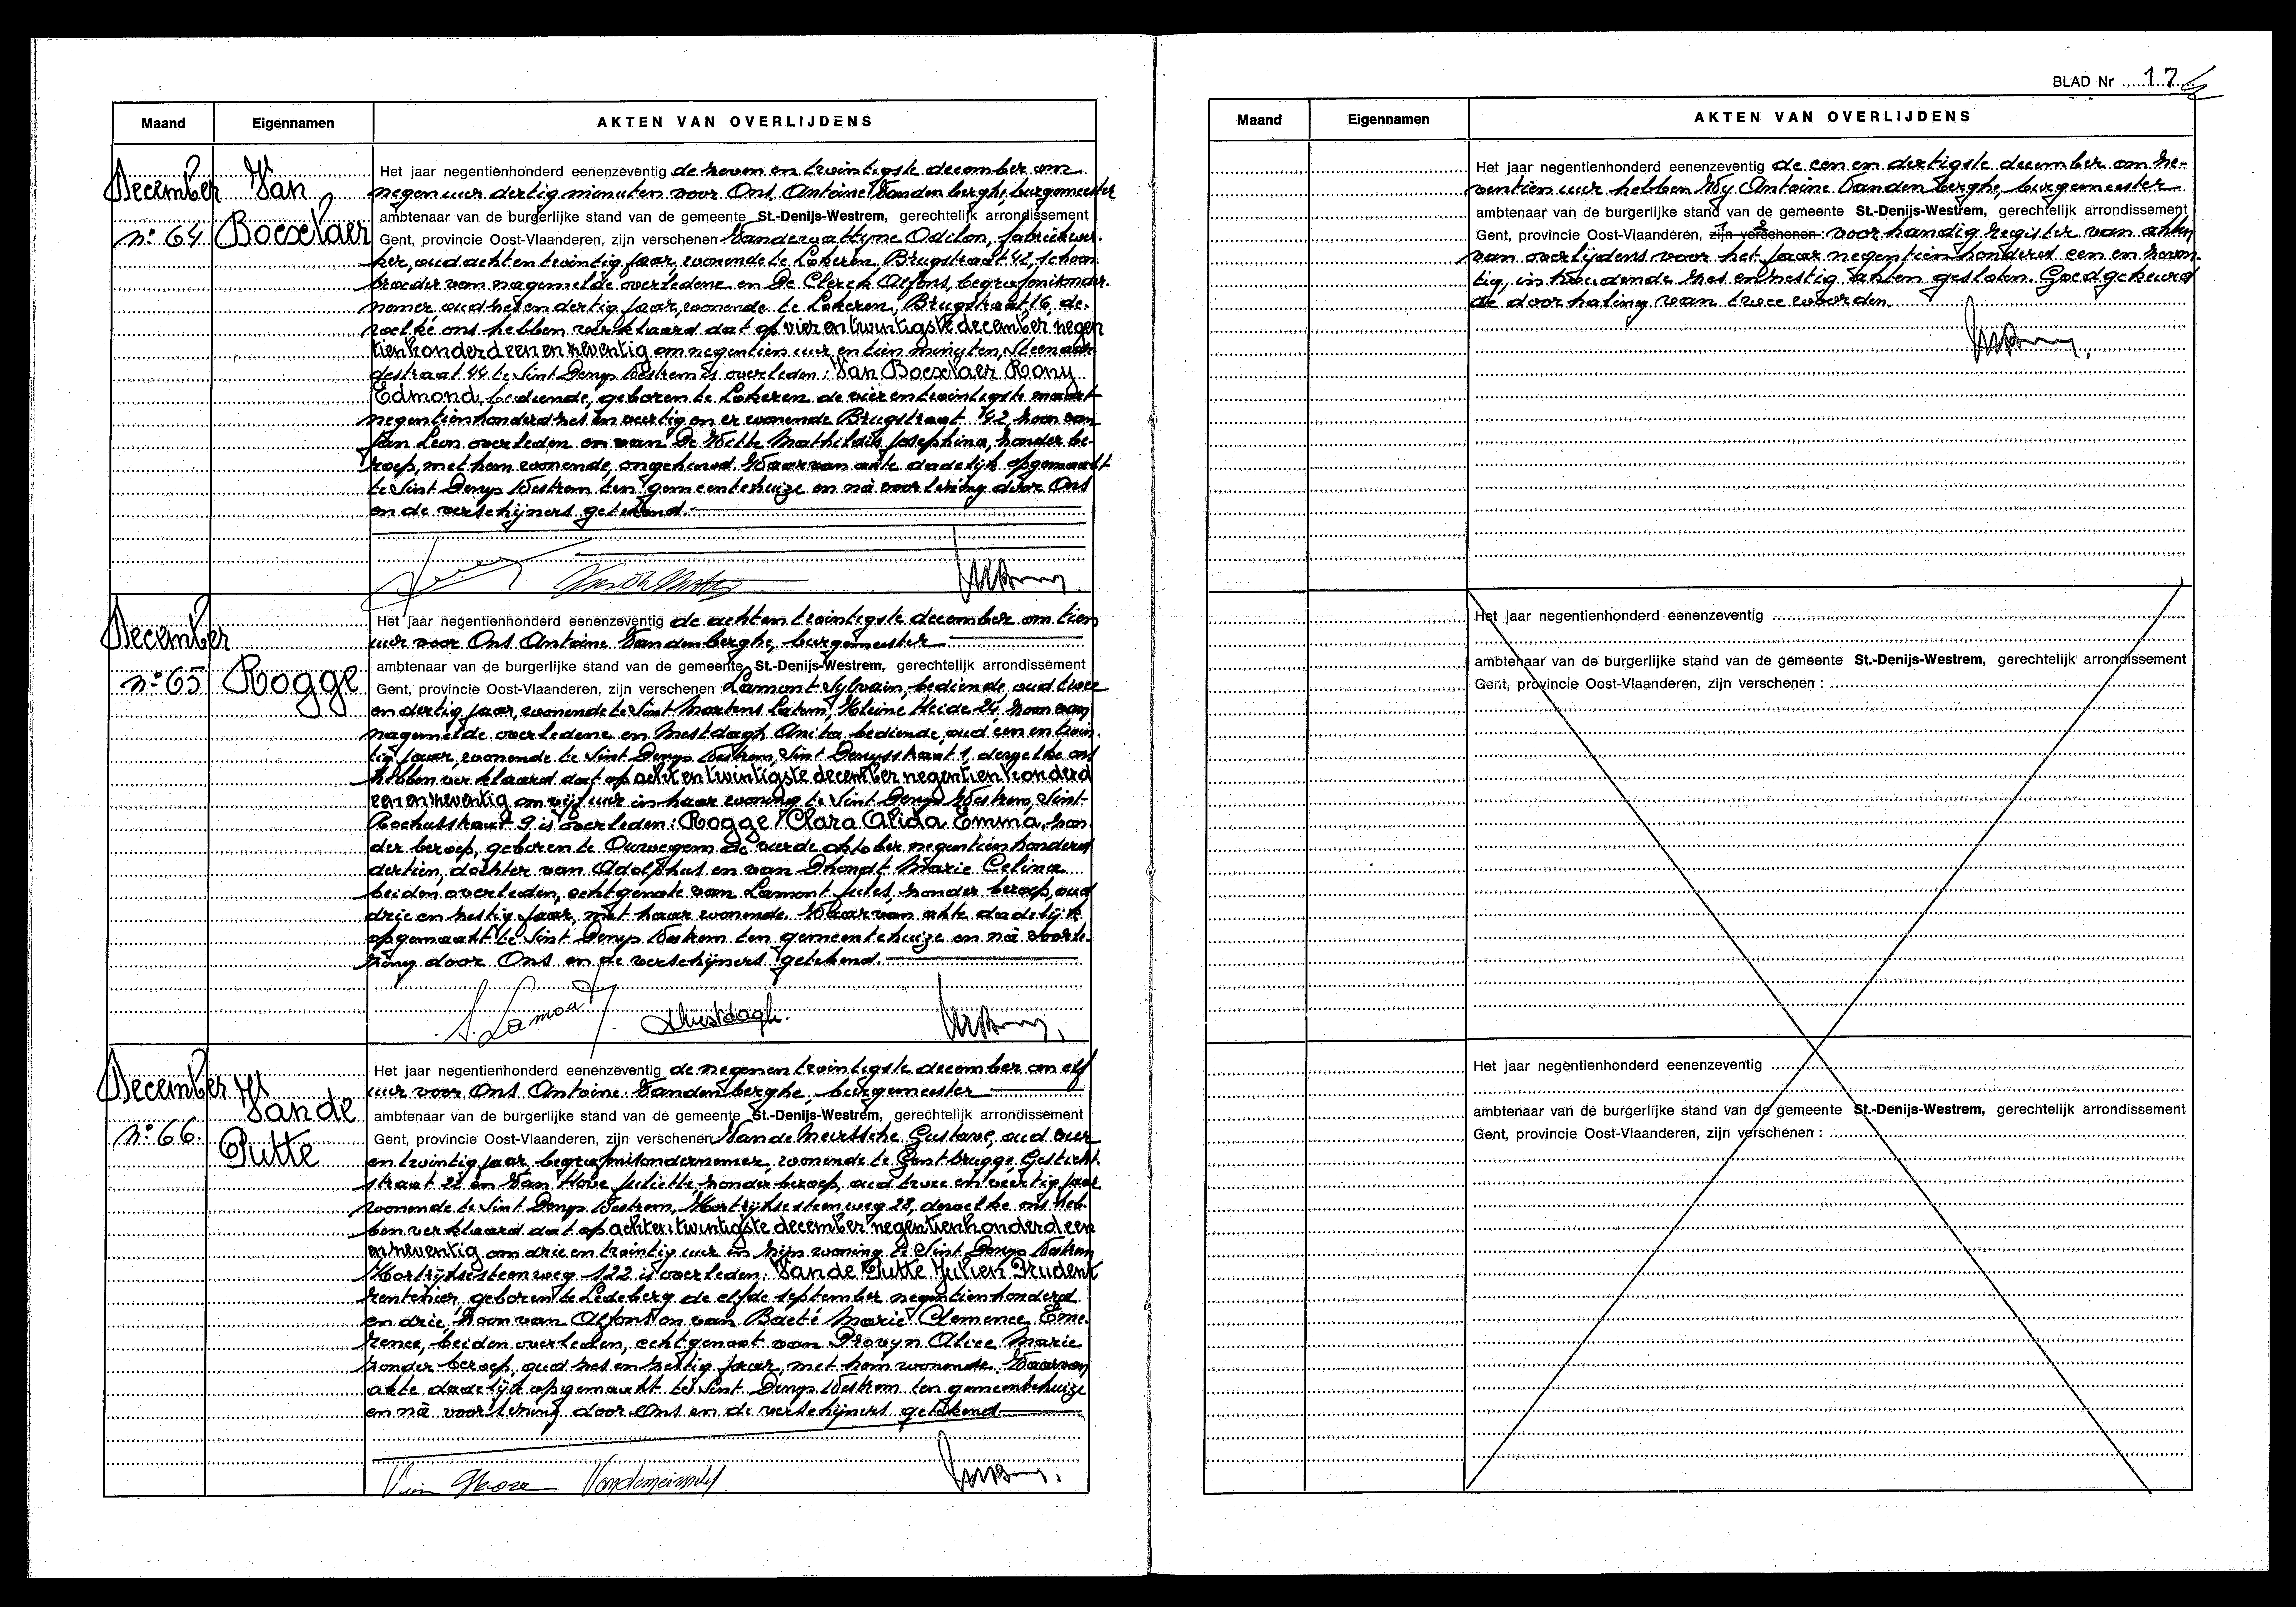 Maand
Eigennamen
AKTEN VAN OVERLIJDENS
December
nº 64
Van
Boexelaer
Het jaar negentienhonderd eenenzeventig de zeven en twintigste december om
negen uur dertig minuten voor Ons Antoine Vandenberghe, burgemeester
ambtenaar van de burgerlijke stand van de gemeente St.-Denijs-Westrem, gerechtelijk arrondissement
Gent, provincie Oost-Vlaanderen, zijn verschenen Odilon, fabriekwer-
ker, oud acht en twintig jaar, wonende te Lokeren Brugstraat 42, schoon
broeder van nagemelde overledene en De Clerck Alfons, begrafenisonder-
nemer oud zes en dertig jaar, wonende te Lokeren, Brugstraat, 16, de-
zelke ons hebben verklaard dat op vier en twintigste december negen
tienhonderd een en zeventig om negentien uur en tien minuten,
destraat 44 te Sint Denys Westrem is overleden: Van Boexelaer Rony
Edmond, bediende, geboren te Lokeren de vier en twintigste maart
negentienhonderd zes en veertig en er wonende Brugstraat 42 zoon van
Jan Leon overleden en van De Witte Mathildis Josephina, zonder be-
roep, met hem wonende, ongehuwd. Waarvan akte dadelijk opgemaakt
te Sint Denys Westrem ten gemeentehuize en na voorlezing door Ons
en de verschijners getekend.
December
nº 65
Rogge
Het jaar negentienhonderd eenenzeventig de acht en twintigste december om tien
uur voor Ons Antoine Vandenberghe, burgemeester
ambtenaar van de burgerlijke stand van de gemeente St.-Denijs-Westrem, gerechtelijk arrondissement
Gent, provincie Oost-Vlaanderen, zijn verschenen: Lamont Sylvain, bediende, oud twee
en dertig jaar, wonende te Sint Martens Latem, Kleine Heide 24, zoon van
nagemelde overledene en Mestdagh Anita bediende, oud een en twin-
tig jaar, wonende te Sint Denys Westrem, Sint Denysstraat 1, dezelke ons
hebben verklaard dat op acht en twintigste december negentienhonderd
een en zeventig om vijf uur in haar woning te Sint Denys Westrem, Sint-
Rochusstraat 9 is overleden: Rogge Clara Alida Emma, zon-
der beroep, geboren te Ouwegem de vierde oktober negentienhonderd
dertien, dochter van Adolphus en van Dhondt Marie Celina
beiden overleden, echtgenote van Lamont Jules, zonder beroep, oud
drie en zestig jaar, met haar wonende. Waarvan akte dadelijk
opgemaakt te Sint Denys Westrem ten gemeentehuize en na voorle-
zing door Ons en de verschijners getekend.
S. Lamont
AMestdagh.
December
nº 66.
Vande
Putte
Het jaar negentienhonderd eenenzeventig de negen en twintigste december om elf
uur voor Ons Antoine Vandenberghe, burgemeester
ambtenaar van de burgerlijke stand van de gemeente St.-Denijs-Westrem, gerechtelijk arrondissement
Gent, provincie Oost-Vlaanderen, zijn verschenen Vande Meirssche Gustave, oud vier
en twintig jaar begrafenisondernemer, wonende te Gentbrugge Gesticht
straat 22 en Van Hove Juliette, zonder beroep, oud twee en veertig jaar
wonende te Sint Denys Westrem, Kortrijksesteenweg 28, dezelke ons heb-
ben verklaard dat op acht en twintigste december negentienhonderd een
en zeventig om drie en twintig uur in zijn woning te Sint Denys Westrem
Kortrijksesteenweg 122 is overleden: Vande Putte Julien Prudent
rentenier, geboren te Ledeberg de elfde september negentienhonderd
en drie, zoon van Alfons en van Baeté Marie Clemence Eme-
rence, beiden overleden, echtgenoot van Provyn Alice Marie
zonder beroep, oud zes en zestig jaar, met hem wonende. Waarvan
akte dadelijk opgemaakt te Sint Denys Westrem ten gemeentehuize
en na voorlezing door Ons en de verschijners getekend
Van Hove Vandemeirssche
BLAD Nr 17
Maand
Eigennamen
AKTEN VAN OVERLIJDENS
Het jaar negentienhonderd eenenzeventig de een en dertigste december om ze-
ventien uur hebben Wy Antoine Vandenberghe, burgemeester
ambtenaar van de burgerlijke stand van de gemeente St.-Denijs-Westrem, gerechtelijk arrondissement
Gent, provincie Oost-Vlaanderen, zijn verschenen: voorhandig register van akten
van overlijdens voor het jaar negentienhonderd een en zeven-
tig, inhoudende zes en zestig akten gesloten. Goedgekeurd
de doorhaling van twee woorden.
Het jaar negentienhonderd eenenzeventig
ambtenaar van de burgerlijke stand van de gemeente St.-Denijs-Westrem, gerechtelijk arrondissement
Gent, provincie Oost-Vlaanderen, zijn verschenen:
Het jaar negentienhonderd eenenzeventig
ambtenaar van de burgerlijke stand van de gemeente St.-Denijs-Westrem, gerechtelijk arrondissement
Gent, provincie Oost-Vlaanderen, zijn verschenen: